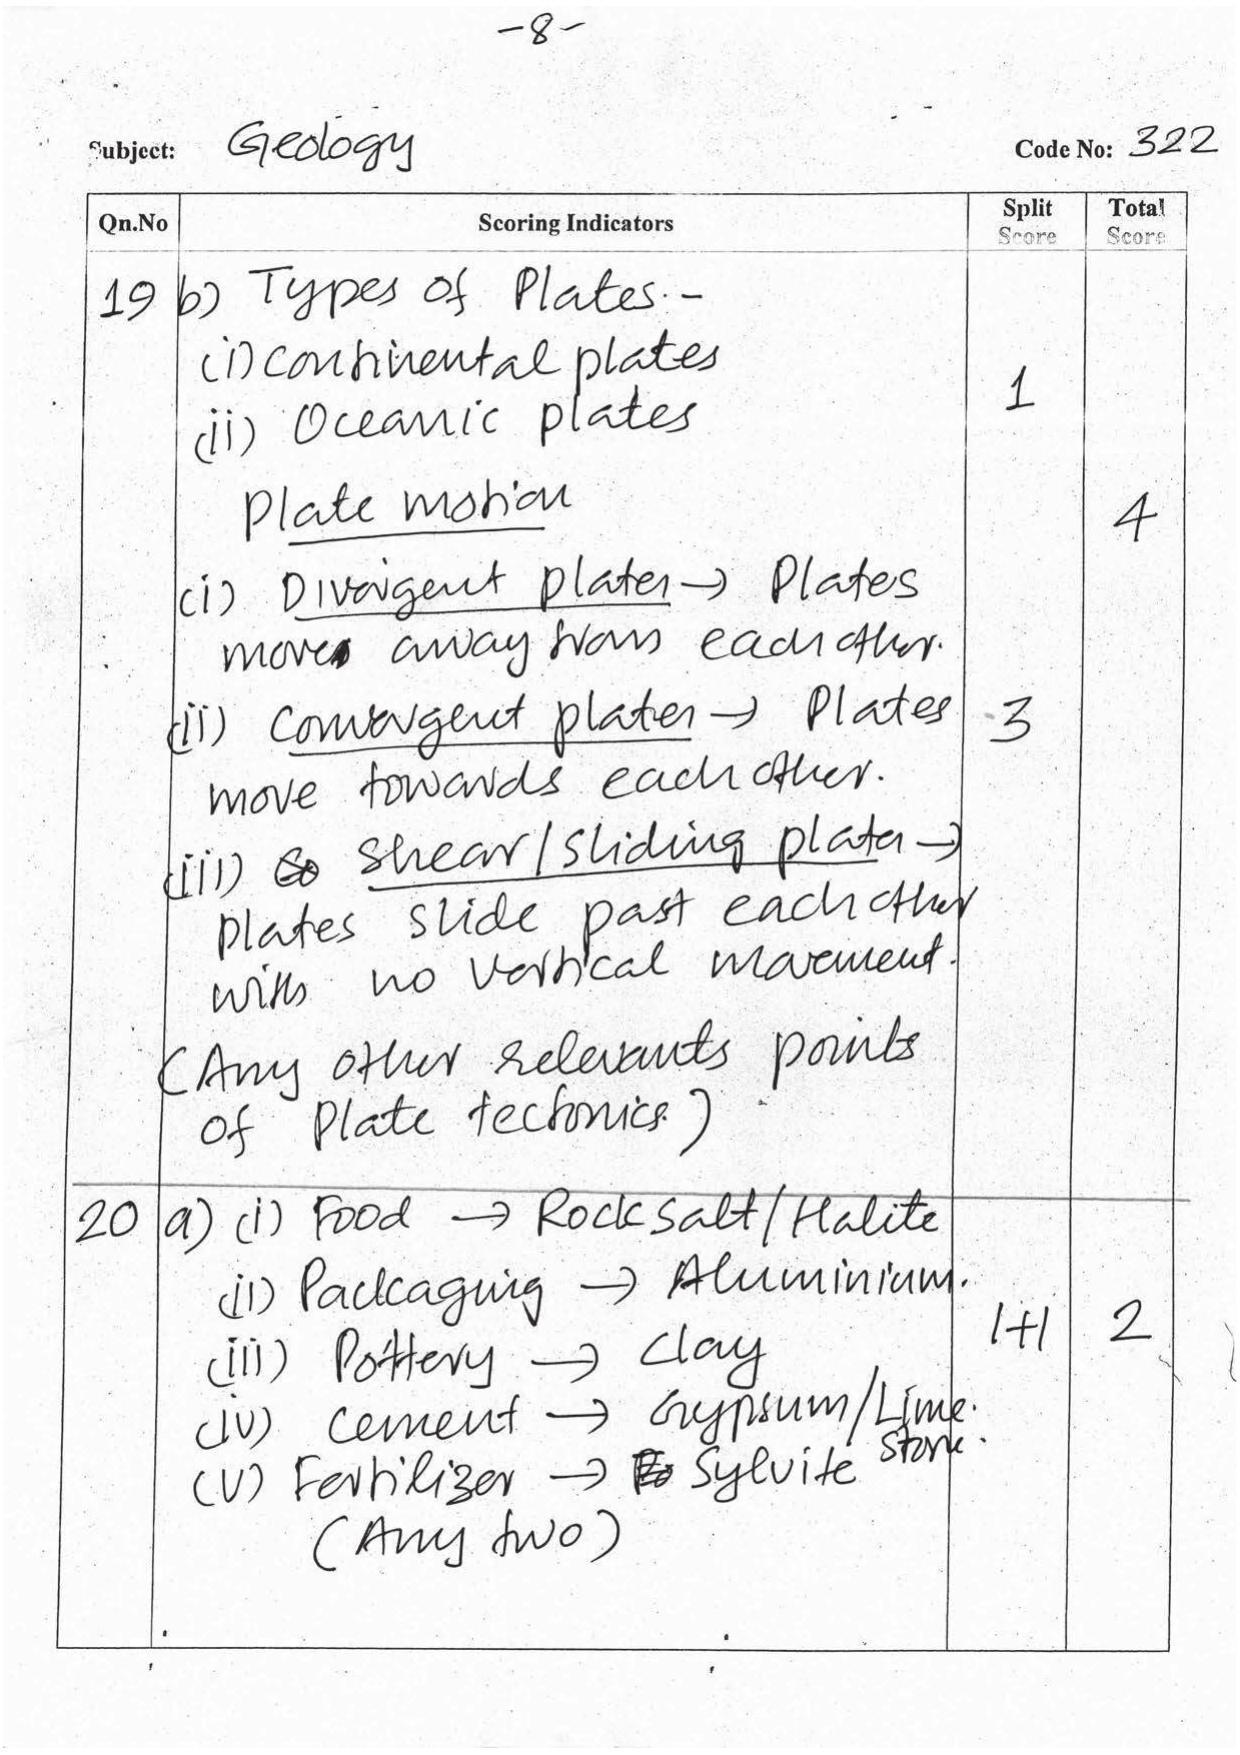 -8-
Subject: Geology Code No: 322
Qn.No Scoring Indicators Split Score Total Score
19 b) Types of Plates:-
(i) Continental plates
(ii) Oceanic plates
1
Plate motion
4
(i) Divergent plates → Plates
move away from each other.
(ii) Convergent plates → Plates
3
move towards each other.
(iii) Shear/Sliding plates →
plates slide past each other
with no vertical movement.
(Any other relevants points
of Plate tectonics)
20 a) (i) Food → Rock salt/Halite
(ii) Packaging → Aluminium.
(iii) Pottery → Clay
1+1 2
(iv) Cement → Gypsum/Lime
stone.
(v) Fertilizer → Sylvite
(Any two)